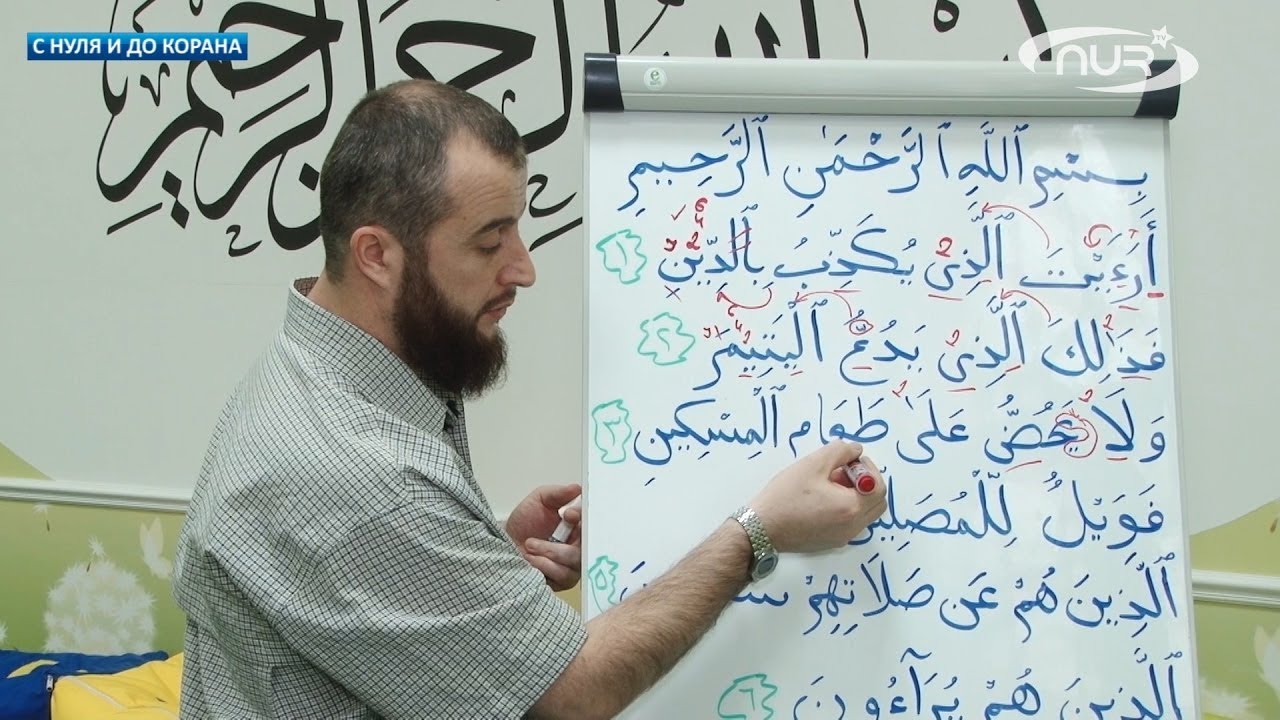 С НУЛЯ И ДО КОРАНА
NUR TV
بِسْمِ ٱللَّهِ ٱلرَّحْمَٰنِ ٱلرَّحِيمِ
أَرَءَيْتَ ٱلَّذِي يُكَذِّبُ بِٱلدِّينِ ١
فَذَٰلِكَ ٱلَّذِي يَدُعُّ ٱلْيَتِيمَ ٢
وَلَا يَحُضُّ عَلَىٰ طَعَامِ ٱلْمِسْكِينِ ٣
فَوَيْلٌ لِّلْمُصَلِّينَ
ٱلَّذِينَ هُمْ عَن صَلَاتِهِمْ ٥
ٱلَّذِينَ هُمْ يُرَآءُونَ ٦